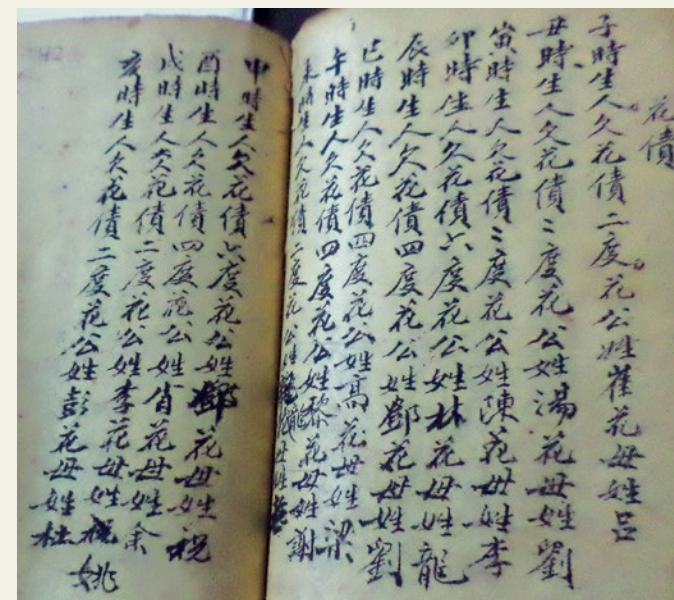 花債
子時生人欠花債二度花公姓崔花母姓呂
丑時生人欠花債三度花公姓湯花母姓劉
寅時生人欠花債三度花公姓陳花母姓李
卯時生人欠花債六度花公姓林花母姓龍
辰時生人欠花債四度花公姓鄧花母姓劉
巳時生人欠花債四度花公姓高花母姓梁
午時生人欠花債四度花公姓黎花母姓謝
未時生人欠花債二度花公姓龍花母姓
申時生人欠花債六度花公姓鄧花母姓祝
酉時生人欠花債四度花公姓花母姓余
戌時生人欠花債二度花公姓李花母姓姚
亥時生人欠花債二度花公姓彭花母姓杜
42